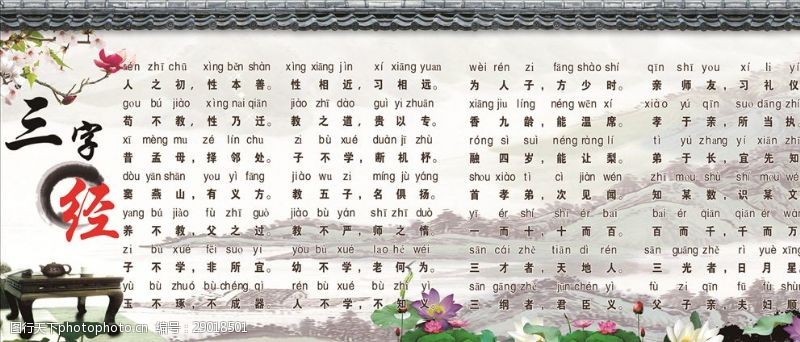 三字经
sān zhī chū  xìng běn shàn  xìng xiāng jìn  xí xiāng yuan  wèi rén zi  fāng shào shí  qīn shī you  xí lǐ yí
人之初，性本善。性相近，习相远。为人子，方少时。亲师友，习礼仪
gou bú jiào  xìng nai qiān  jiào zhī dào  guì yi zhuān  xiāng jiu líng  néng wēn xí  xiào yú qīn  suo dāng zhí
苟不教，性乃迁。教之道，贵以专。香九龄，能温席。孝于亲，所当执
xī mèng mu  zé lín chu  zi bù xué  duàn jī zhù  róng sì suì  néng ràng lí  tì yú zhang  yí xiān zhī
昔孟母，择邻处。子不学，断机杼。融四岁，能让梨。弟于长，宜先知
dòu yān shān  you yì fāng  jiào wu zi  míng jù yáng  shou xiào tì  cì jiàn wén  zhī mou shù  shí mou wén
窦燕山，有义方。教五子，名俱扬。首孝弟，次见闻。知某数，识某文
yang bú jiào  fù zhī guò  jiào bù yán  shī zhī duò  yī ér shí  shí ér bai  bai ér qiān  qiān ér wàn
养不教，父之过。教不严，师之惰。一而十，十而百。百而千，千而万
zi bù xué  fēi suo yí  yòu bù xué  lao hé wéi  sān cái zhě  tiān dì rén  sān guāng zhě  rì yuè xīng
子不学，非所宜。幼不学，老何为。三才者，天地人。三光者，日月星
yù bù zhuó  bù chéng qì  rén bù xué  bù zhī yì  sān gāng zhě  jūn chén yì  fù zi qīn  fū fù shùn
玉不琢，不成器。人不学，不知义。三纲者，君臣义。父子亲，夫妇顺
图行天下 photophoto.cn  编号：29018501